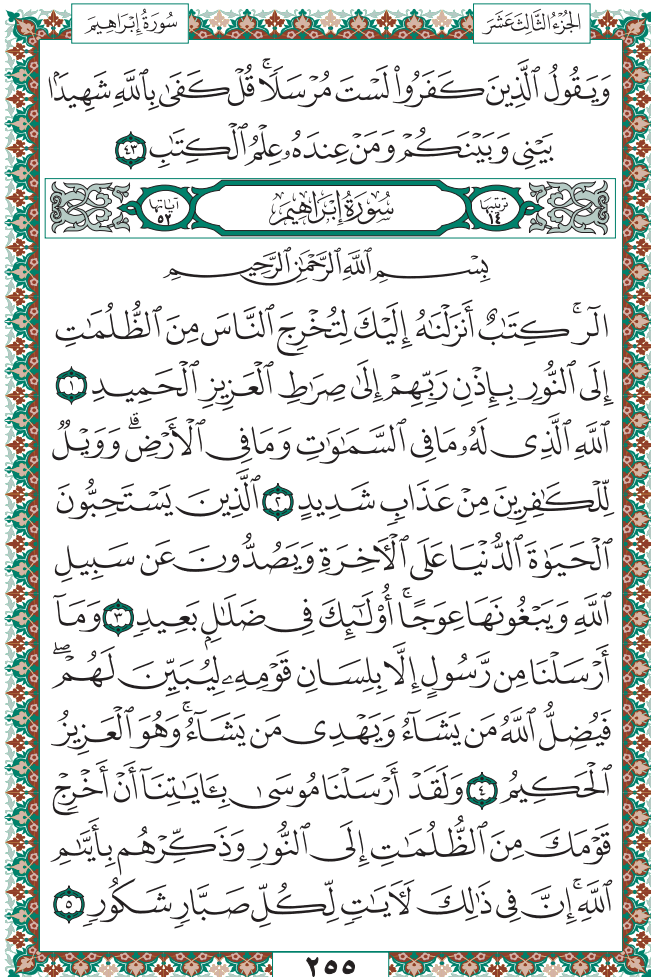 سُورَةُ إِبْرَاهِيم
الجُزْءُ الثَّالِثَ عَشَرَ
وَيَقُولُ ٱلَّذِينَ كَفَرُواْ لَسْتَ مُرْسَلٗاۚ قُلْ كَفَىٰ بِٱللَّهِ شَهِيدَۢا
بَيْنِي وَبَيْنَكُمْ وَمَنْ عِندَهُۥ عِلْمُ ٱلْكِتَٰبِ ٤٣
ترتيبها ١٤ سُورَةُ إِبْرَاهِيم آياتها ٥٢
بِسْمِ ٱللَّهِ ٱلرَّحْمَٰنِ ٱلرَّحِيمِ
الٓرۚ كِتَٰبٌ أَنزَلْنَٰهُ إِلَيْكَ لِتُخْرِجَ ٱلنَّاسَ مِنَ ٱلظُّلُمَٰتِ
إِلَى ٱلنُّورِ بِإِذْنِ رَبِّهِمْ إِلَىٰ صِرَٰطِ ٱلْعَزِيزِ ٱلْحَمِيدِ ١
ٱللَّهِ ٱلَّذِي لَهُۥ مَا فِي ٱلسَّمَٰوَٰتِ وَمَا فِي ٱلْأَرْضِۗ وَوَيْلٞ
لِّلْكَٰفِرِينَ مِنْ عَذَابٖ شَدِيدٍ ٢ ٱلَّذِينَ يَسْتَحِبُّونَ
ٱلْحَيَوٰةَ ٱلدُّنْيَا عَلَى ٱلْأٓخِرَةِ وَيَصُدُّونَ عَن سَبِيلِ
ٱللَّهِ وَيَبْغُونَهَا عِوَجًاۚ أُوْلَٰٓئِكَ فِي ضَلَٰلِۭ بَعِيدٖ ٣ وَمَآ
أَرْسَلْنَا مِن رَّسُولٍ إِلَّا بِلِسَانِ قَوْمِهِۦ لِيُبَيِّنَ لَهُمْۖ
فَيُضِلُّ ٱللَّهُ مَن يَشَآءُ وَيَهْدِي مَن يَشَآءُۚ وَهُوَ ٱلْعَزِيزُ
ٱلْحَكِيمُ ٤ وَلَقَدْ أَرْسَلْنَا مُوسَىٰ بِـَٔايَٰتِنَآ أَنْ أَخْرِجْ
قَوْمَكَ مِنَ ٱلظُّلُمَٰتِ إِلَى ٱلنُّورِ وَذَكِّرْهُم بِأَيَّىٰمِ
ٱللَّهِۚ إِنَّ فِي ذَٰلِكَ لَأٓيَٰتٖ لِّكُلِّ صَبَّارٖ شَكُورٖ ٥
٢٥٥